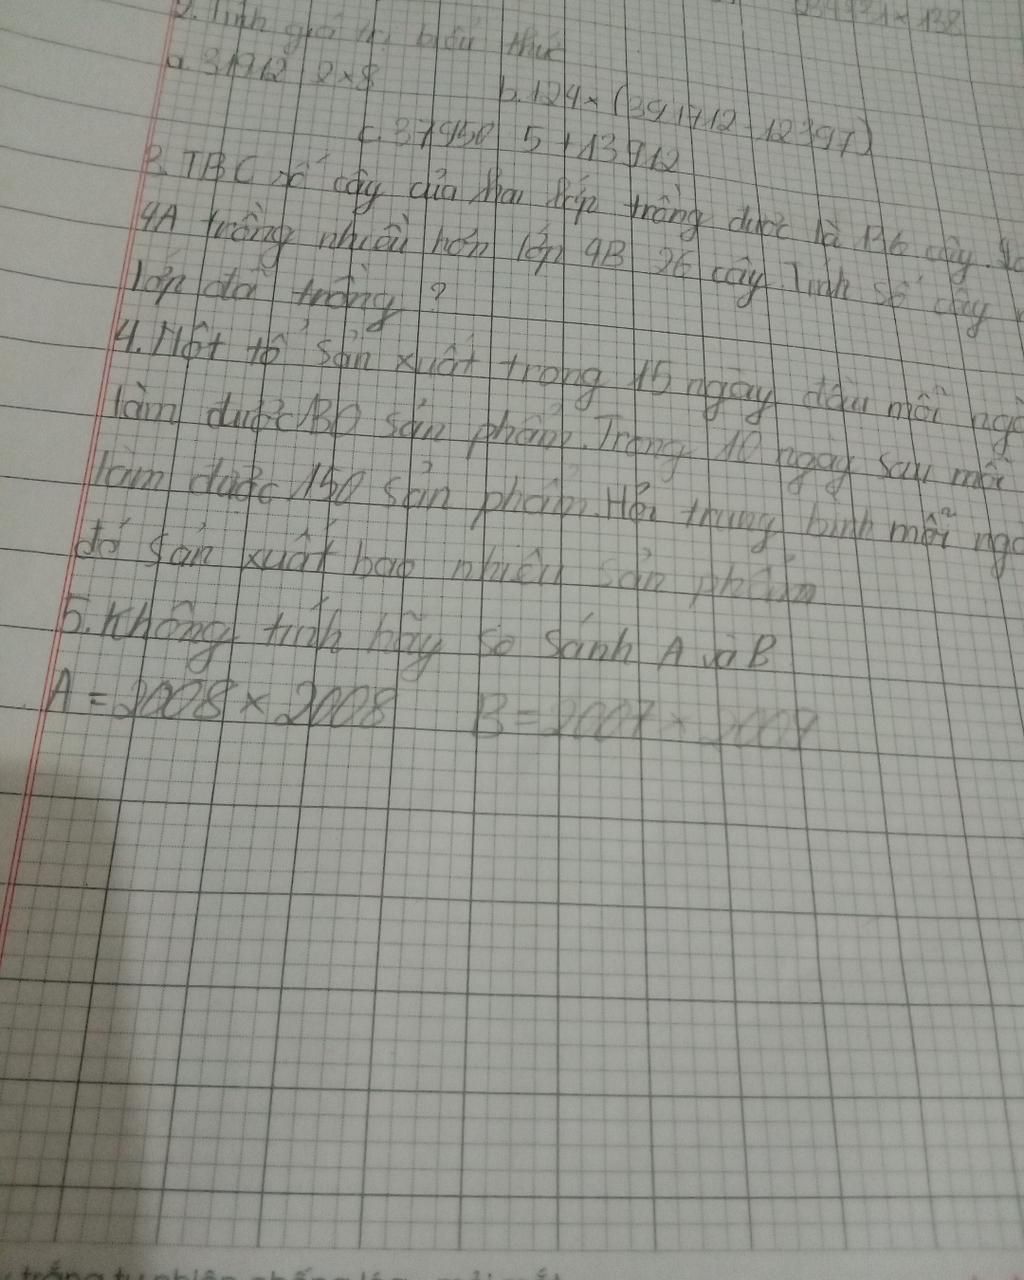 2. Tính giá trị biểu thức
a. 31712 2 × 8
b. 124 × (391712 - 12397)
c. 37950 5 + 13912
3. TBC số cây của hai lớp trồng được là 136 cây.
4A trồng nhiều hơn lớp 4B 26 cây. Tính số cây
lớp đã trồng ?
4. Một tổ sản xuất trong 15 ngày đầu mỗi
làm được 130 sản phẩm. Trong 10 ngày sau mỗi
làm được 150 sản phẩm. Hỏi trung bình mỗi
đó sản xuất bao nhiêu sản phẩm
5. Không tính hãy so sánh A và B
A = 2008 × 2008 B = 2007 × 2009